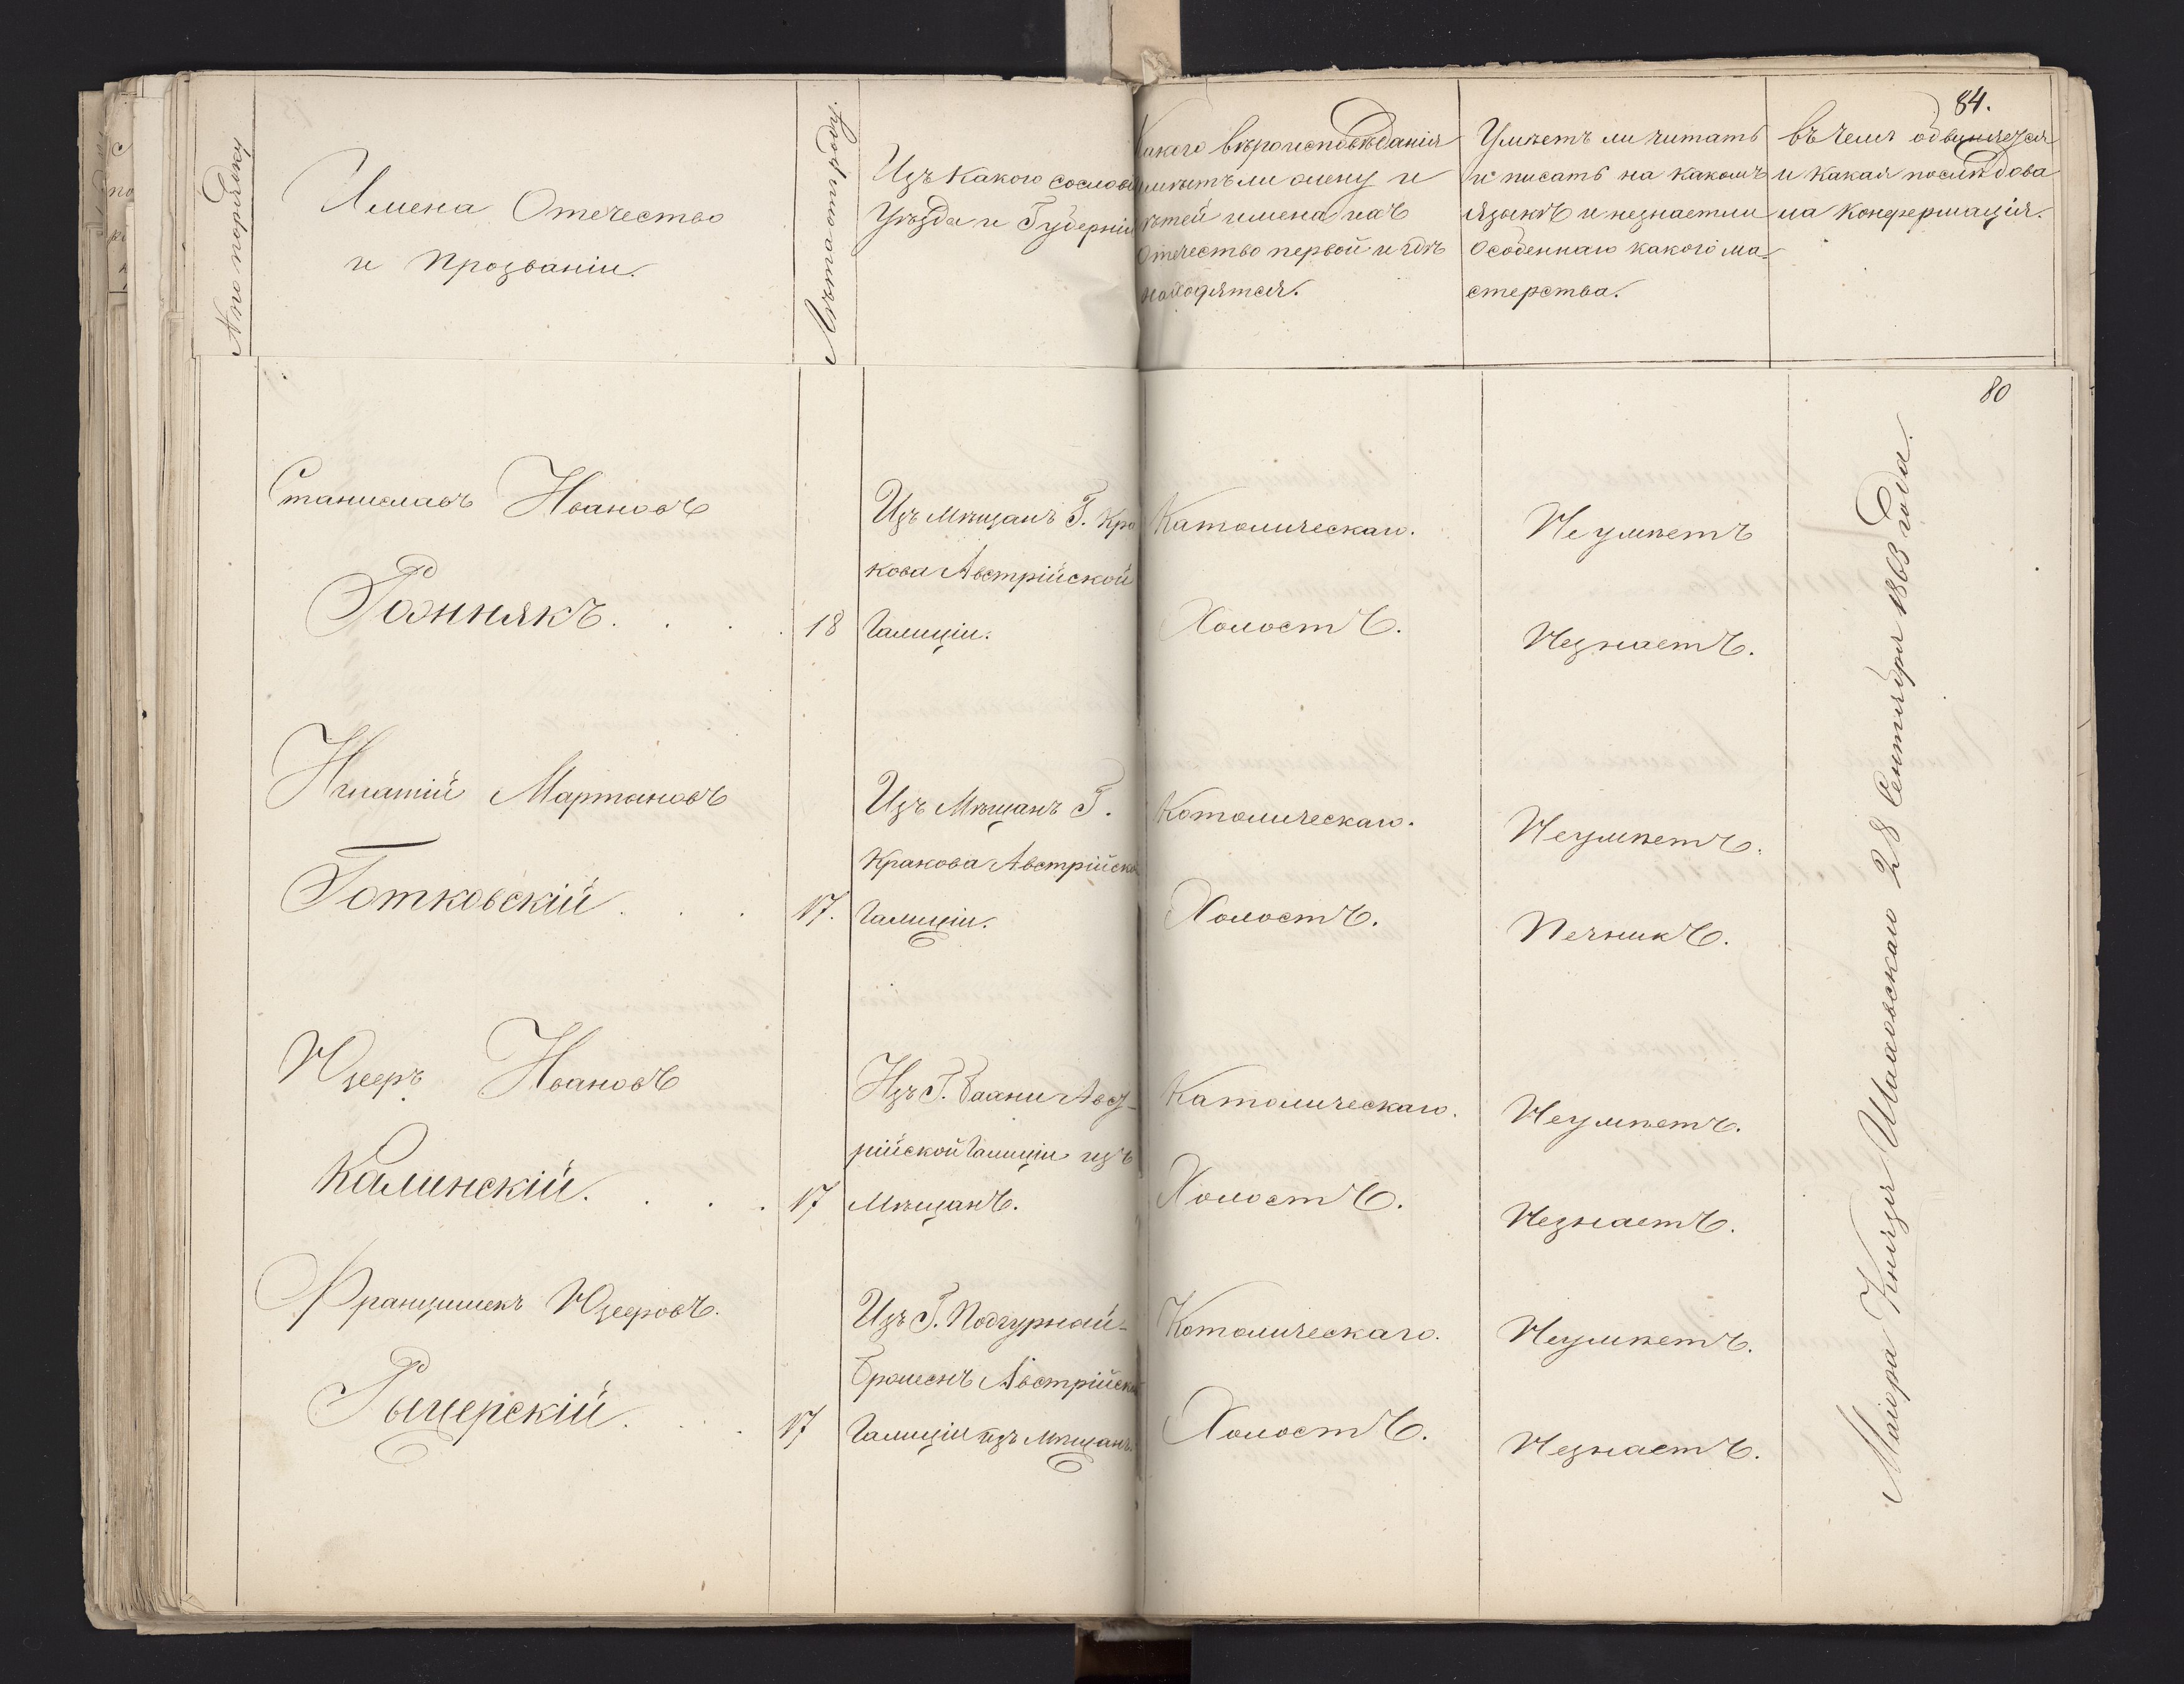 84.
№ по порядку
Имена Отечество
и Прозваніи.
Лѣта отъ роду.
Изъ какого сослов
Уѣзда и Губерніи
Какаго вѣроисповѣданія
имѣетъ ли жену и
дѣтей имена ихъ
Отечество первой и гдѣ
находятся.
Умѣетъ ли читать
и писать на какомъ
языкѣ и незнаетли
Особеннаго какого ма-
стерства.
въ чемъ обвиняется
и какая послѣдова
ла Конфермація.
80
Станиславъ Ивановъ
Рожнякъ. . . .
18
Изъ Мѣщанъ Г. Кра
кова Австрійской
Галиціи.
Католическаго.
Холостъ.
Неумѣетъ
Незнаетъ.
Игнатій Мартановъ
Готковскій . . .
17.
Изъ Мѣщанъ Г.
Кракова Австрійско
Галиціи.
Католическаго.
Холостъ.
Неумѣетъ.
Печникъ.
Юзефъ Ивановъ
Калинскій. . . .
17
Изъ Г. Авст-
рійской Галиціи изъ
Мѣщанъ.
Католическаго.
Холостъ.
Неумѣетъ.
Незнаетъ.
Францишекъ Юзефовъ.
Рыцерскій . . .
17
Изъ Г.
Австрійской
Галиціи изъ Мѣщанъ.
Католическаго.
Холостъ.
Неумѣетъ.
Незнаетъ.
Маіора Князя Шаховскаго 28 Сентября 1863 года.